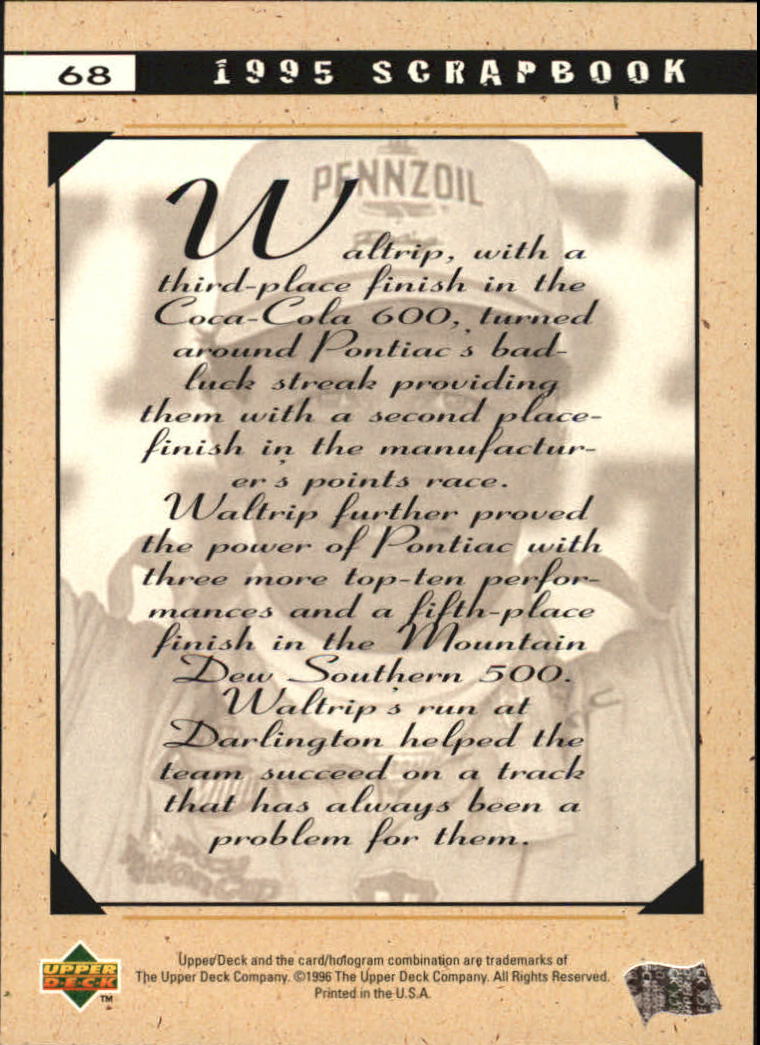 68 1995 SCRAPBOOK
PENNZOIL
Waltrip, with a
third-place finish in the
Coca-Cola 600, turned
around Pontiac's bad-
luck streak providing
them with a second place-
finish in the manufactur-
er's points race.
Waltrip further proved
the power of Pontiac with
three more top-ten perfor-
mances and a fifth-place
finish in the Mountain
Dew Southern 500.
Waltrip's run at
Darlington helped the
team succeed on a track
that has always been a
problem for them.
UPPER
DECK
TM
Upper Deck and the card/hologram combination are trademarks of
The Upper Deck Company. ©1996 The Upper Deck Company. All Rights Reserved.
Printed in the U.S.A.